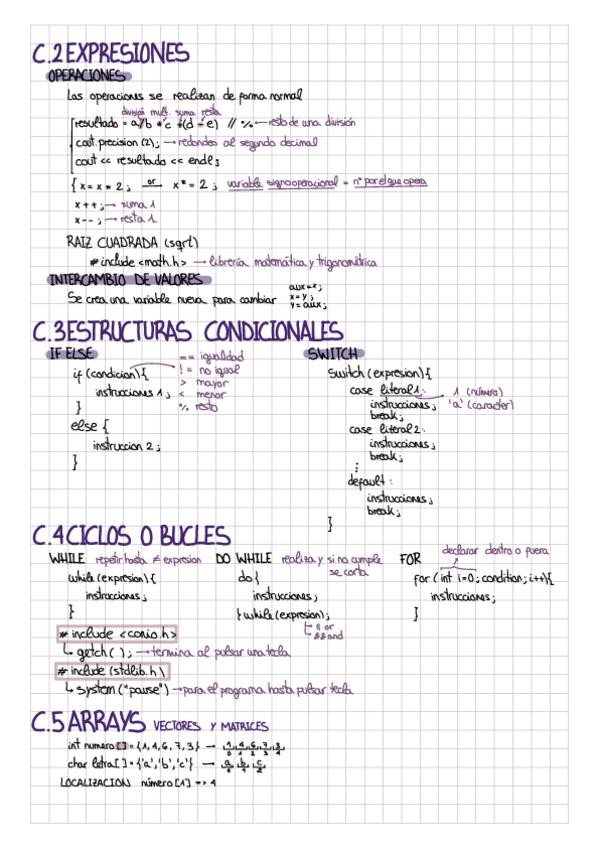 C.2 EXPRESIONES
OPERACIONES
Las operaciones se realizan de forma normal
división mult. suma resta
resultado = a/b * c +(d - e) // % ← resto de una división
cout.precision(2); → redondea al segundo decimal
cout << resultado << endl;
{ x = x * 2 ; or x* = 2 ; variable signo operacional = nº por el que opera
x++; → suma 1
x--; → resta 1
RAIZ CUADRADA (sqrt)
#include <math.h> → librería matemática y trigonométrica
INTERCAMBIO DE VALORES
Se crea una variable nueva para cambiar
aux=x;
x=y;
y=aux;
C.3 ESTRUCTURAS CONDICIONALES
IF ELSE
if (condicion){
instrucciones 1;
}
else {
instruccion 2;
}
== igualdad
! = no igual
> mayor
< menor
% resto
SWITCH
Switch (expresion){
case literal1: 1 (número)
instrucciones; 'a' (caracter)
break;
case literal2:
instrucciones;
break;
⋮
default:
instrucciones;
break;
}
C.4 CICLOS O BUCLES
WHILE repetir hasta ≠ expresion
while (expresion){
instrucciones;
}
DO WHILE realiza y si no cumple
se corta
do{
instrucciones;
} while (expresion);
|| or
&& and
FOR declarar dentro o fuera
for (int i=0; condition; i++){
instrucciones;
}
#include <conio.h>
getch(); → termina al pulsar una tecla
#include (stdlib.h)
system("pause") → para el programa hasta pulsar tecla
C.5 ARRAYS VECTORES Y MATRICES
int numero[]={1,4,6,7,3} →
char letra[]={'a','b','c'} →
LOCALIZACION número[1] => 4